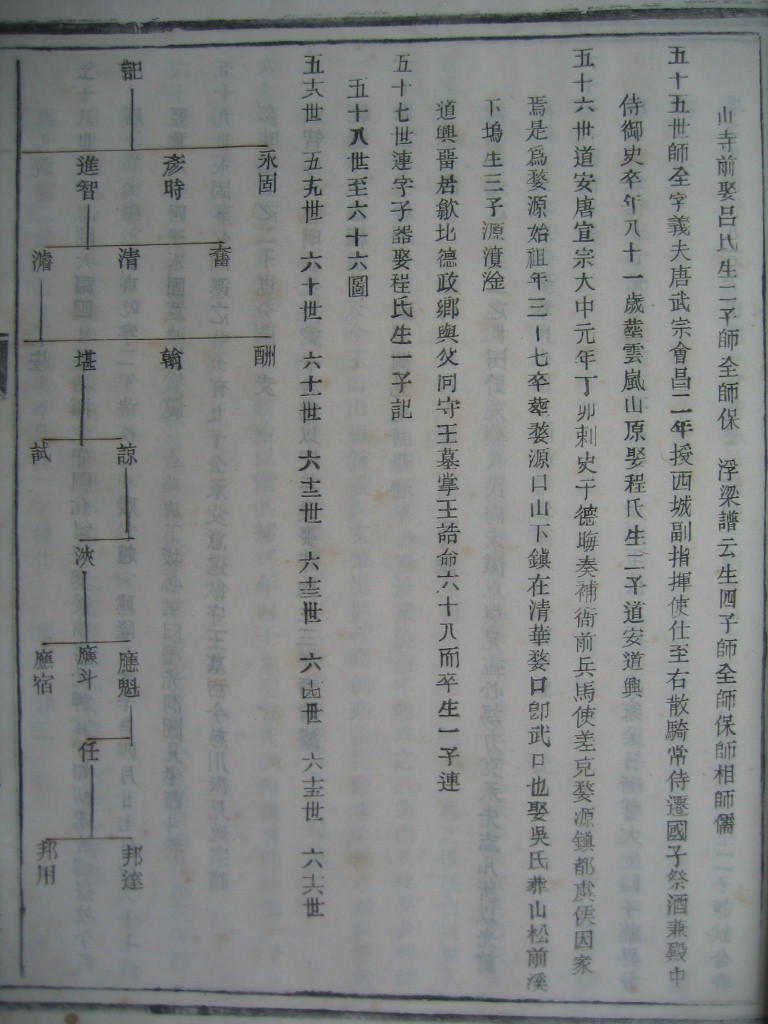 山寺前娶呂氏生二子師全師保 浮梁譜云生四子師全師保師相師儒
五十五世師全字義夫唐武宗會昌二年授西城副指揮使仕至右散騎常侍遷國子祭酒兼殿中
侍御史卒年八十一歲葬雲嵐山原娶程氏生二子道安道興
五十六世道安唐宣宗大中元年丁卯刺史于德晦奏補衙前兵馬使差克婺源鎮都虞侯因家
焉是爲婺源始祖年三十七卒葬婺源口山下鎮在清華婺口卽武口也娶吳氏葬山松前溪
下塢生三子源濆淦
道興晋居歙北德政鄉與父同守王墓掌王誥命六十八而卒生一子連
五十七世連字子器娶程氏生一子記
五十八世至六十六圖
五八世 五九世 六十世 六十一世 六十二世 六十三世 六十四世 六十五世 六十六世
記
永固
彥時
進智
奮
清
澹
酬
翰
堪
諒
試
浹
應魁
應斗
應宿
任
邦達
邦用